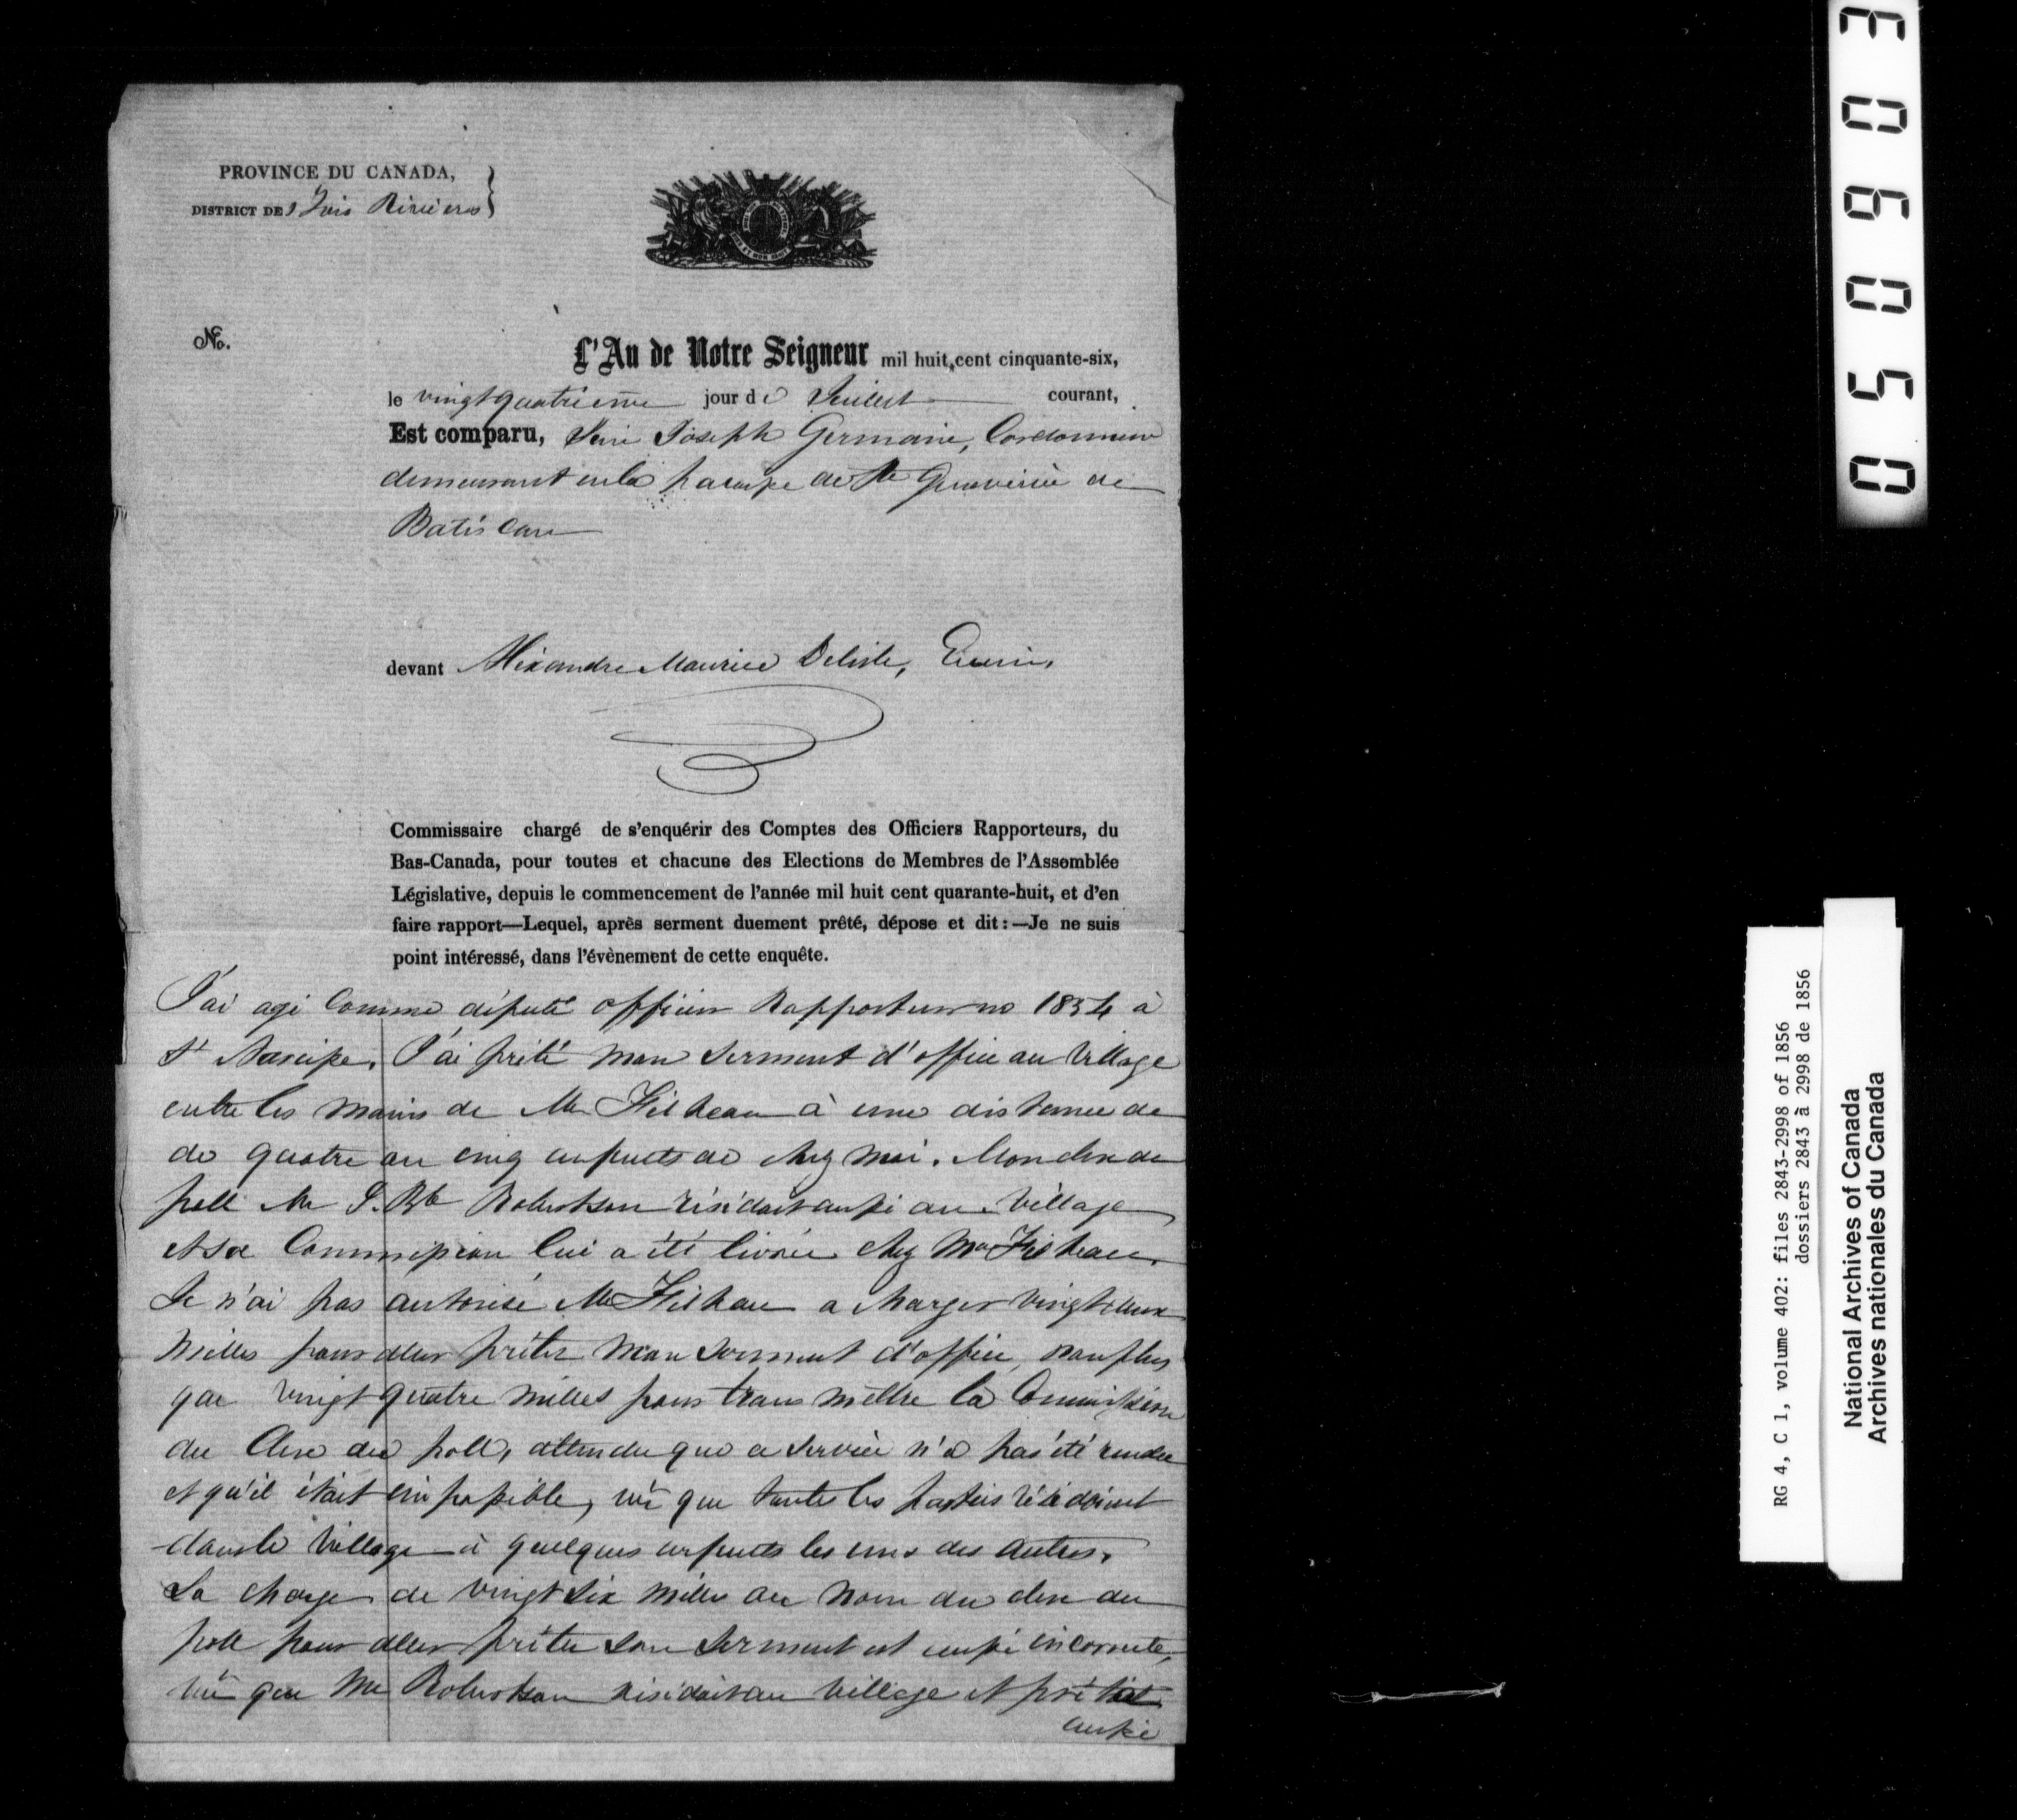 PROVINCE DU CANADA,
DISTRICT DE Trois Rivières
No.
L'An de Notre Seigneur mil huit cent cinquante-six,
le vingtquatrième jour de Juillet courant,
Est comparu, Joseph Germain, Cordonnier
demeurant en la paroisse de Ste Geneviève de
Batiscan
devant Alexandre Maurice Delisle, Ecuier,
Commissaire chargé de s'enquérir des Comptes des Officiers Rapporteurs, du
Bas-Canada, pour toutes et chacune des Elections de Membres de l'Assemblée
Législative, depuis le commencement de l'année mil huit cent quarante-huit, et d'en
faire rapport—Lequel, après serment duement prêté, dépose et dit :—Je ne suis
point intéressé, dans l'évènement de cette enquête.
J'ai agi comme député officier Rapporteur en 1854 à
St Narcisse. J'ai prêté mon serment d'office au village
entre les mains de Mr Filteau à une distance de
de quatre ou cinq arpents de chez moi. Mon clerc de
poll Mr Robertson résidait aussi au village
et sa Commission lui a été livrée chez Mr Filteau.
Je n'ai pas autorisé Mr Filteau a charger vingt deux
milles pour aller prêter mon serment d'office, non plus
que vingt quatre milles pour transmettre la Commission
du Clerc du poll, attendu que ce service n'a pas été rendu
et qu'il était impossible, vû que toutes les parties résidaient
dans le village à quelques arpents les uns des autres.
La charge de vingt six milles au nom du clerc du
poll pour aller prêter son serment est aussi incorrecte,
vû que Mr Robertson résidait au village et prêtat
aussi
0 5 0 9 0 3
RG 4, C 1, volume 402: files 2843-2998 of 1856
dossiers 2843 à 2998 de 1856
National Archives of Canada
Archives nationales du Canada